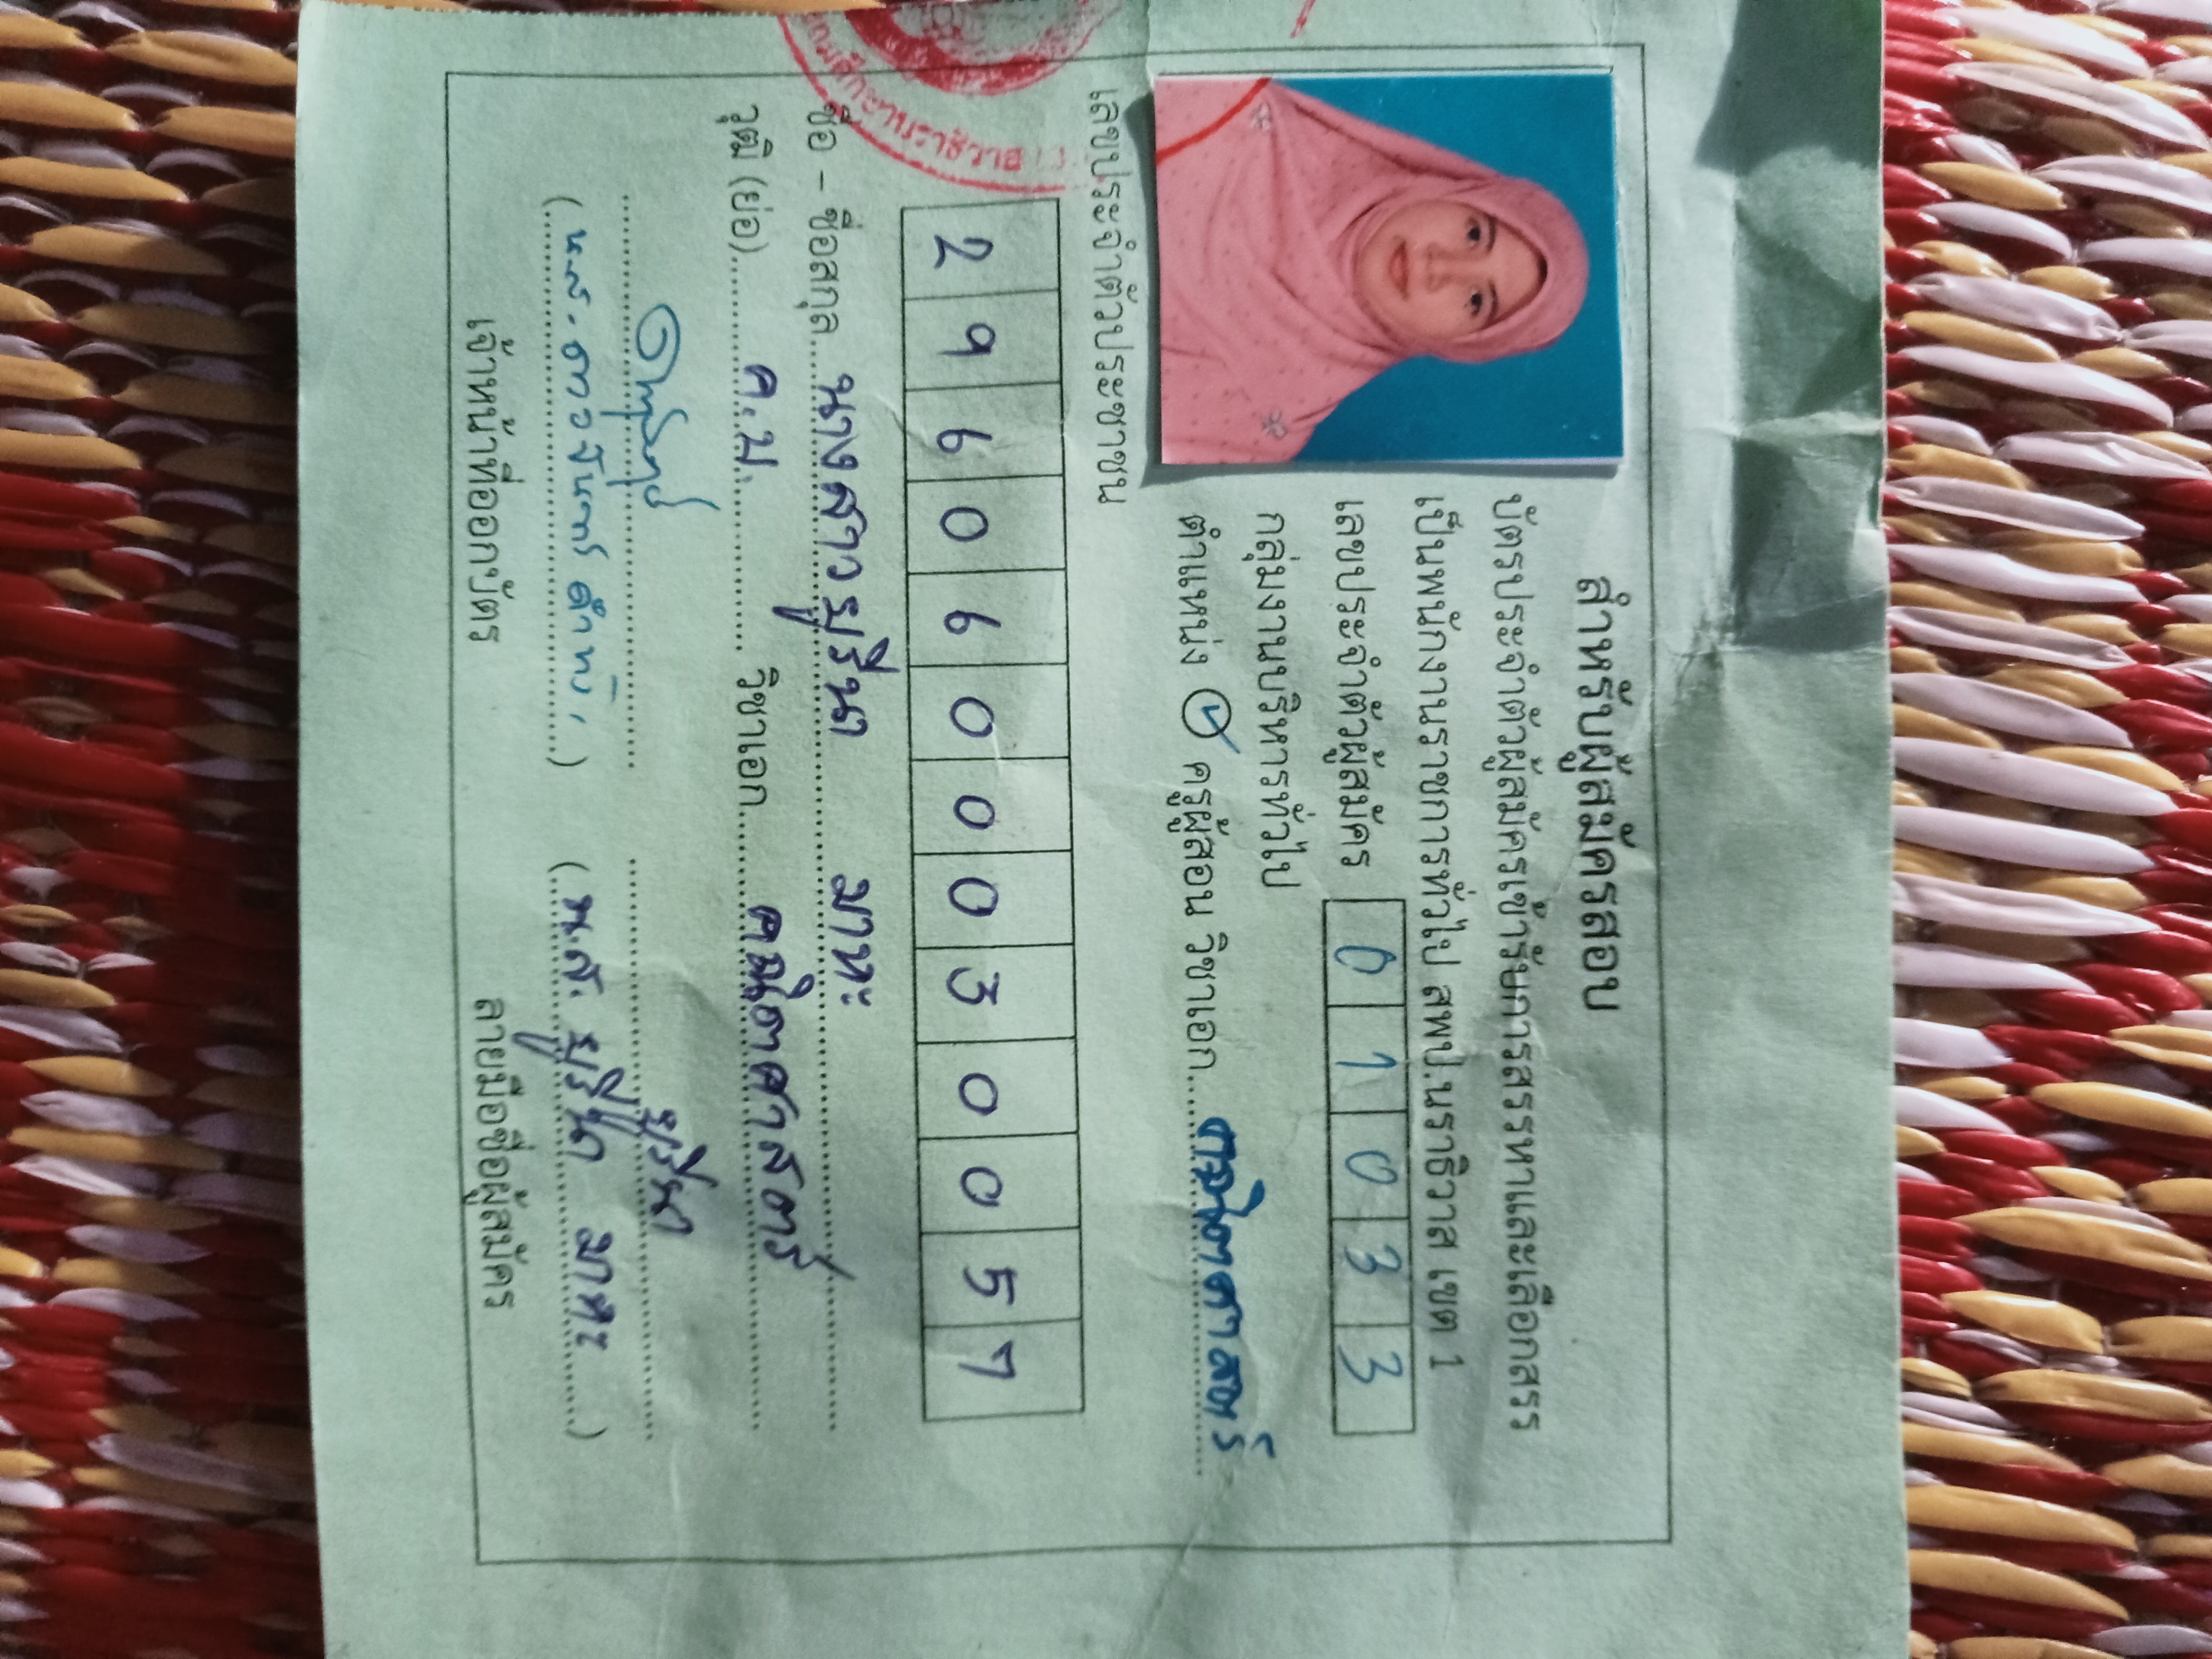 สำหรับผู้สมัครสอบ
บัตรประจำตัวผู้สมัครเข้ารับการสรรหาและเลือกสรร
เป็นพนักงานราชการทั่วไป สพป.นราธิวาส เขต 1
เลขประจำตัวผู้สมัคร 0 1 0 3 3
กลุ่มงานบริหารทั่วไป
ตำแหน่ง ครูผู้สอน วิชาเอก คณิตศาสตร์
เลขประจำตัวประชาชน
2 9 6 0 6 0 0 0 3 0 0 5 7
ชื่อ - ชื่อสกุล นางสาวยูรีนา มาหะ
วุฒิ (ย่อ) ค.บ. วิชาเอก คณิตศาสตร์
ยูรีนา
(น.ส. ) (น.ส. ยูรีนา มาหะ)
เจ้าหน้าที่ออกบัตร ลายมือชื่อผู้สมัคร